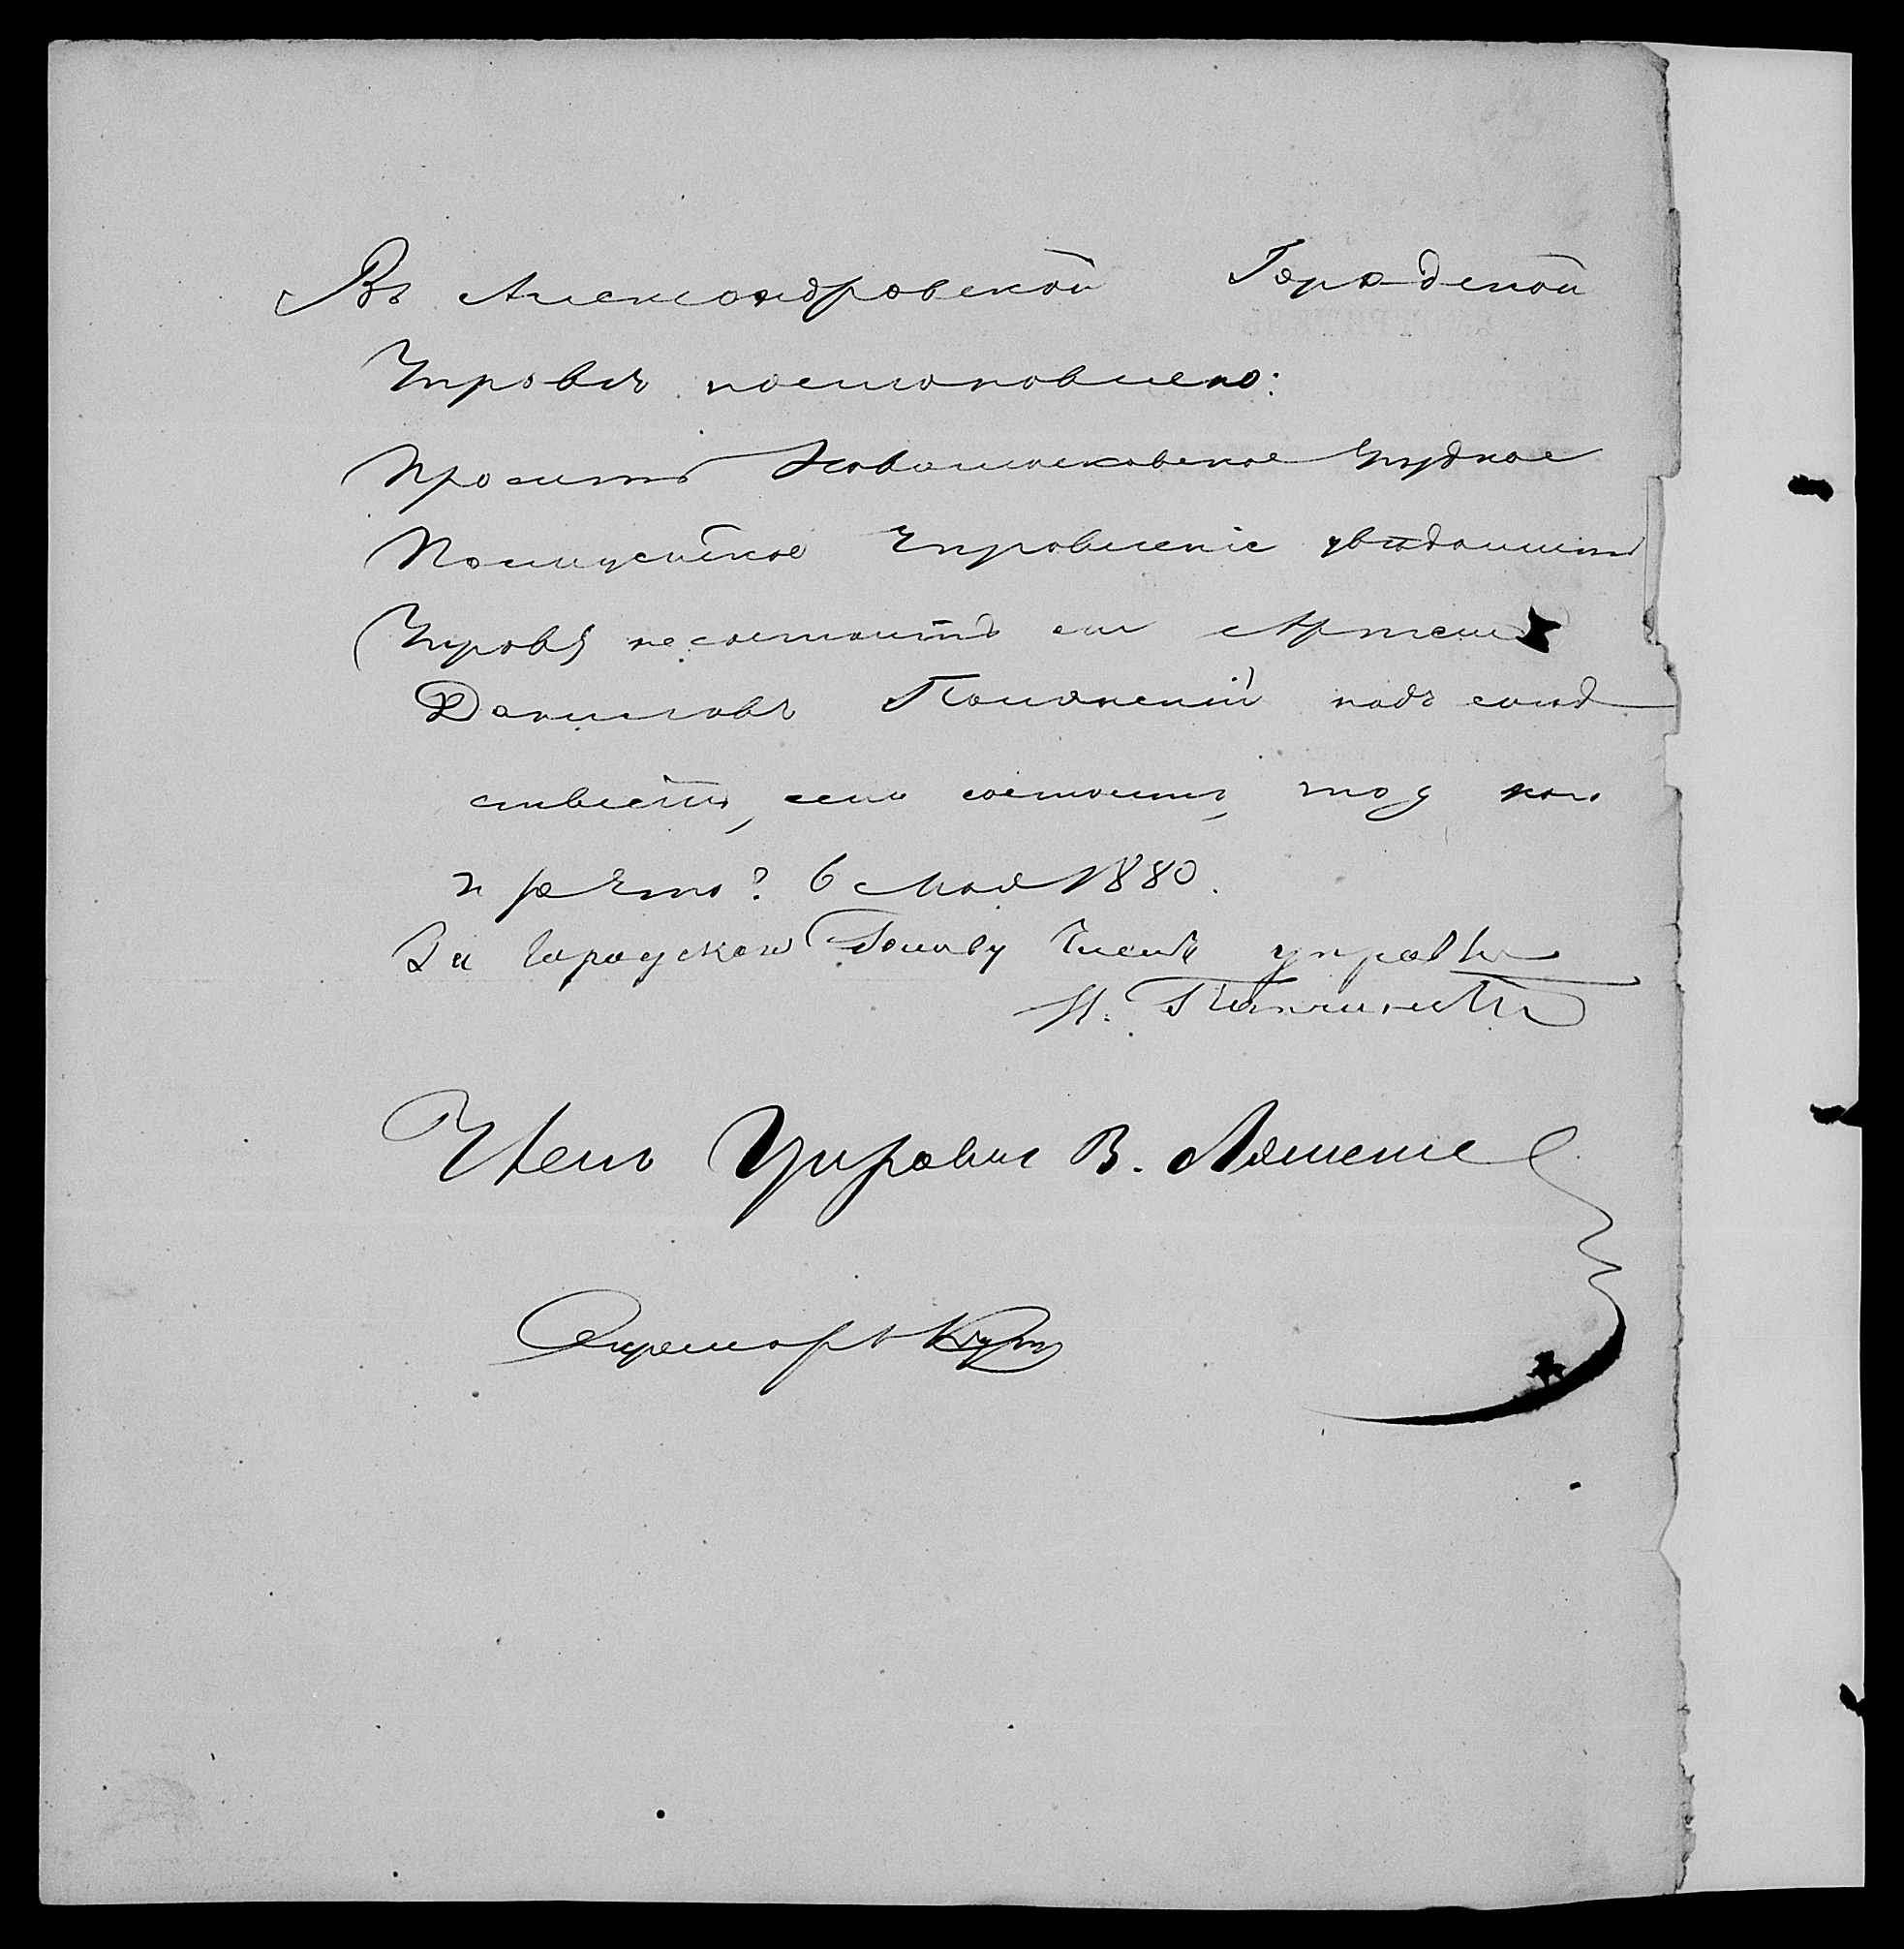 Въ Александровской Городской
Управѣ постановлено:
Просить Новомосковское Уѣздное
Полицейское Управленіе увѣдомить
Управу несостоитъ ли Артемъ
Даниловъ Полянскій подъ слѣд
ствіемъ, если состоитъ, то у кого
и за что? 6 Мая 1880.
За Городскаго Голову Членъ управы
Членъ Управы В.
Секретарь